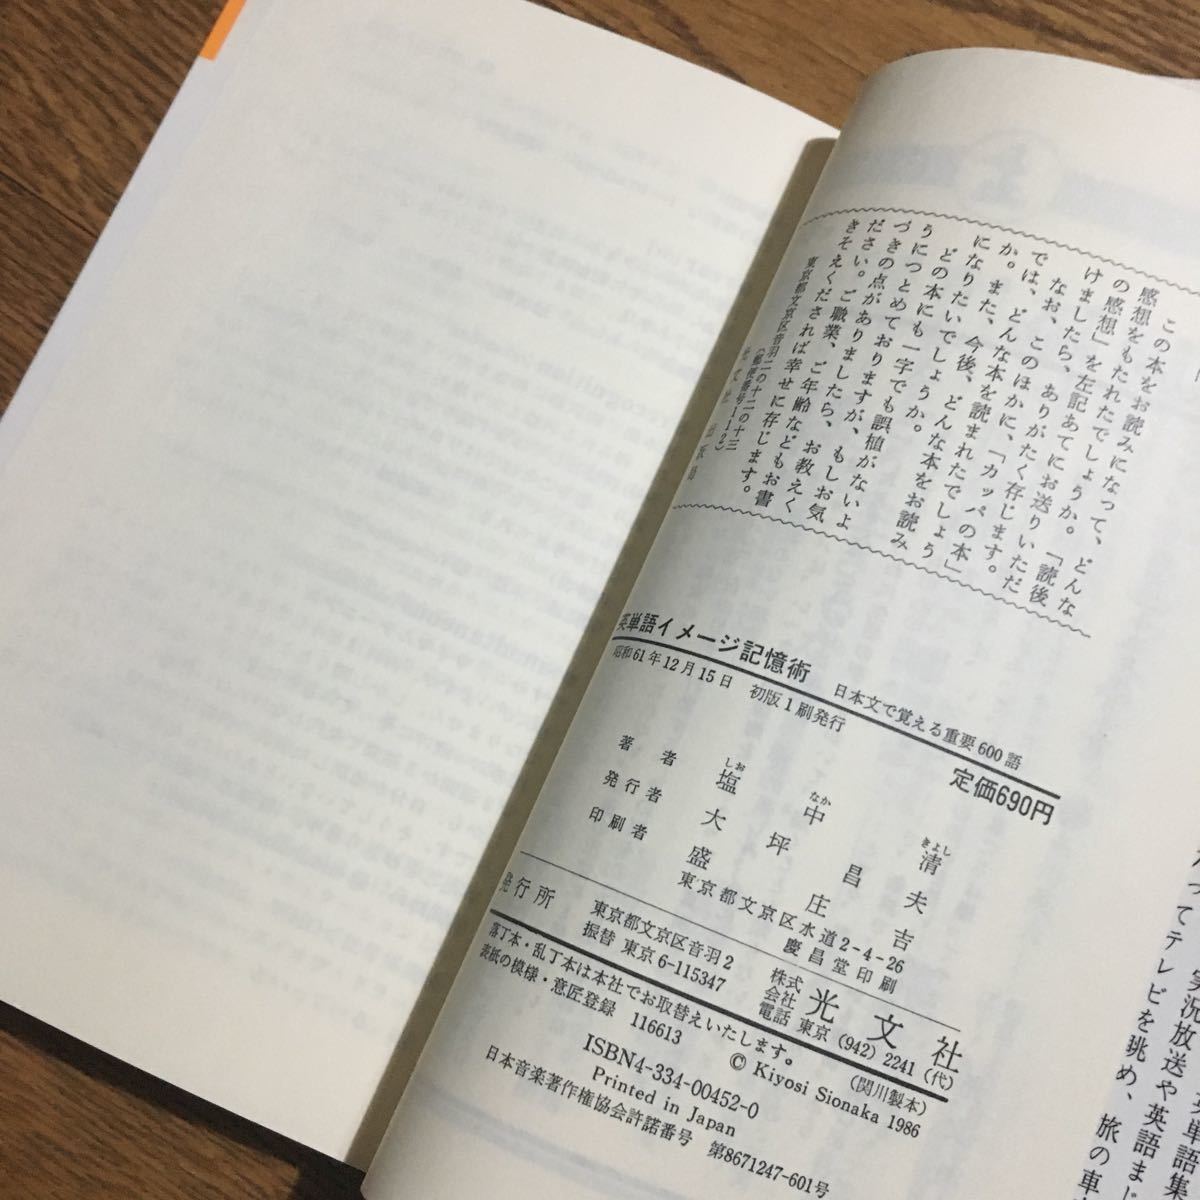 この本をお読みになって、どんな
感想をもたれたでしょうか。「読後
の感想」を左記あてにお送りいただ
けましたら、ありがたく存じます。
なお、このほかに、「カッパの本」
では、どんな本を読まれたでしょう
か。また、今後、どんな本をお読み
になりたいでしょうか。
どの本にも一字でも誤植がないよ
うにつとめておりますが、もしお気
づきの点がありましたら、お教えく
ださい。ご職業、ご年齢などもお書
きそえくだされば幸せに存じます。
東京都文京区音羽二の十二の十三
(郵便番号112)
光文社出版局
英単語イメージ記憶術 日本文で覚える重要600語
昭和61年12月15日 初版1刷発行
定価690円
著者 塩中清
しお なか きよし
発行者 大坪昌夫
印刷者 盛庄吉
東京都文京区水道2-4-26
慶昌堂印刷
発行所 東京都文京区音羽2
振替 東京6-115347
株式会社 光文社
電話 東京(942)2241(代)
落丁本・乱丁本は本社でお取替えいたします。
(関川製本)
表紙の模様・意匠登録 116613
© Kiyosi Sionaka 1986
ISBN4-334-00452-0
Printed in Japan
日本音楽著作権協会許諾番号 第8671247-601号
ってテレビを眺め、旅の車
実況放送や英語まじ
英単語集